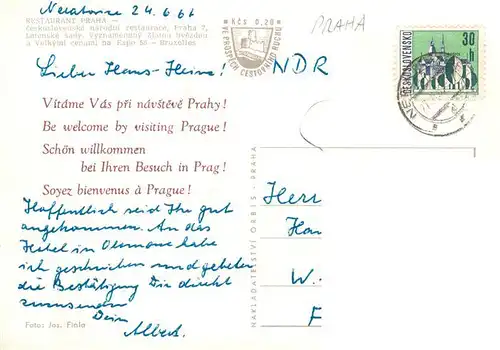 Neratovice 24.6.66
RESTAURANT PRAHA -
Československé národní restaurace, Praha 7,
Letenské sady. Vyznamenaný Zlatou hvězdou
a Velkými cenami na Expo 58 - Bruxelles
Kčs 0,20
VE PROSPĚCH CESTOVNÍHO RUCHU
PRAHA
ČESKOSLOVENSKO
30 h
Lieber Hans-Heine!
NDR
Vítáme Vás při návštěvě Prahy!
Be welcome by visiting Prague!
Schön willkommen
bei Ihren Besuch in Prag!
Soyez bienvenus à Prague!
Hoffentlich seid Ihr gut
angekommen. An das
Hotel in Olomouc habe
ich geschrieben und gebeten
die Bestätigung Dir direkt
zuzusenden
Dein
Albert.
Foto: Jos. Finla
NAKLADATELSTVÍ ORBIS - PRAHA
Herr
Han
W.
F